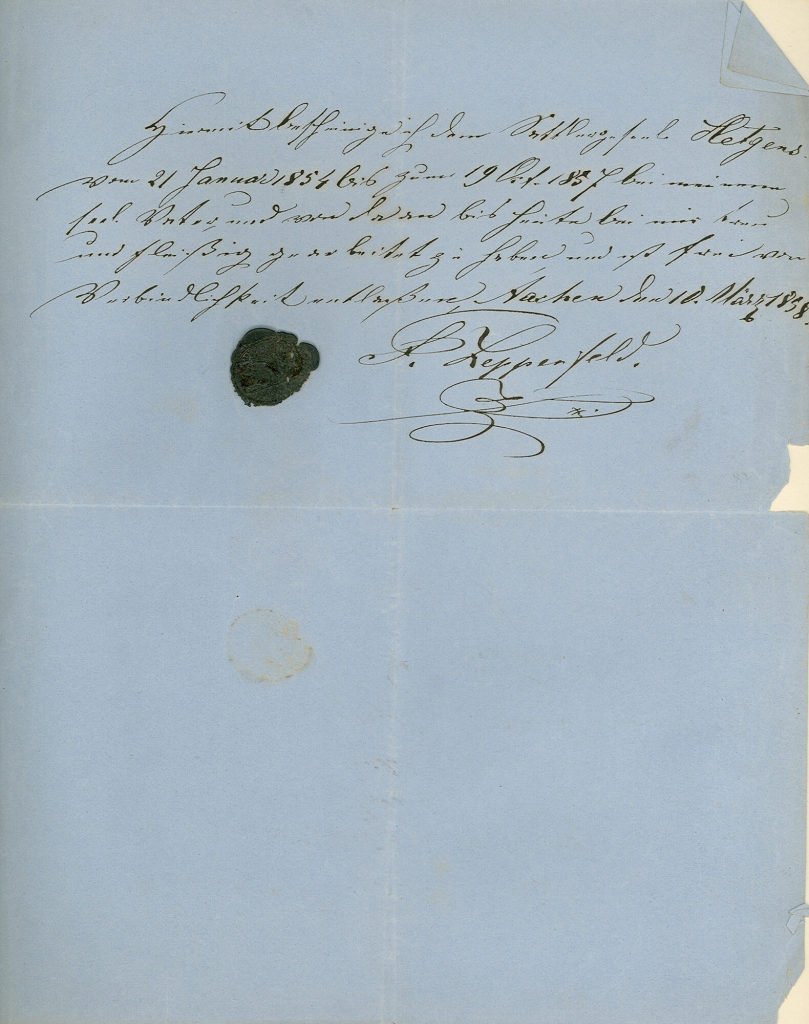 Hiermit bescheinige ich dem Sattlergesele Hetgens
vom 21 Januar 1854 bis zum 19 Oct. 1857 bei meinem
seel. Vater, und von da an bis heute bei mir treu
und fleißig gearbeitet zu haben und ist frei von
Verbindlichkeit entlaßen, Aachen den 10. März 1858
F. Zeppenfeld.